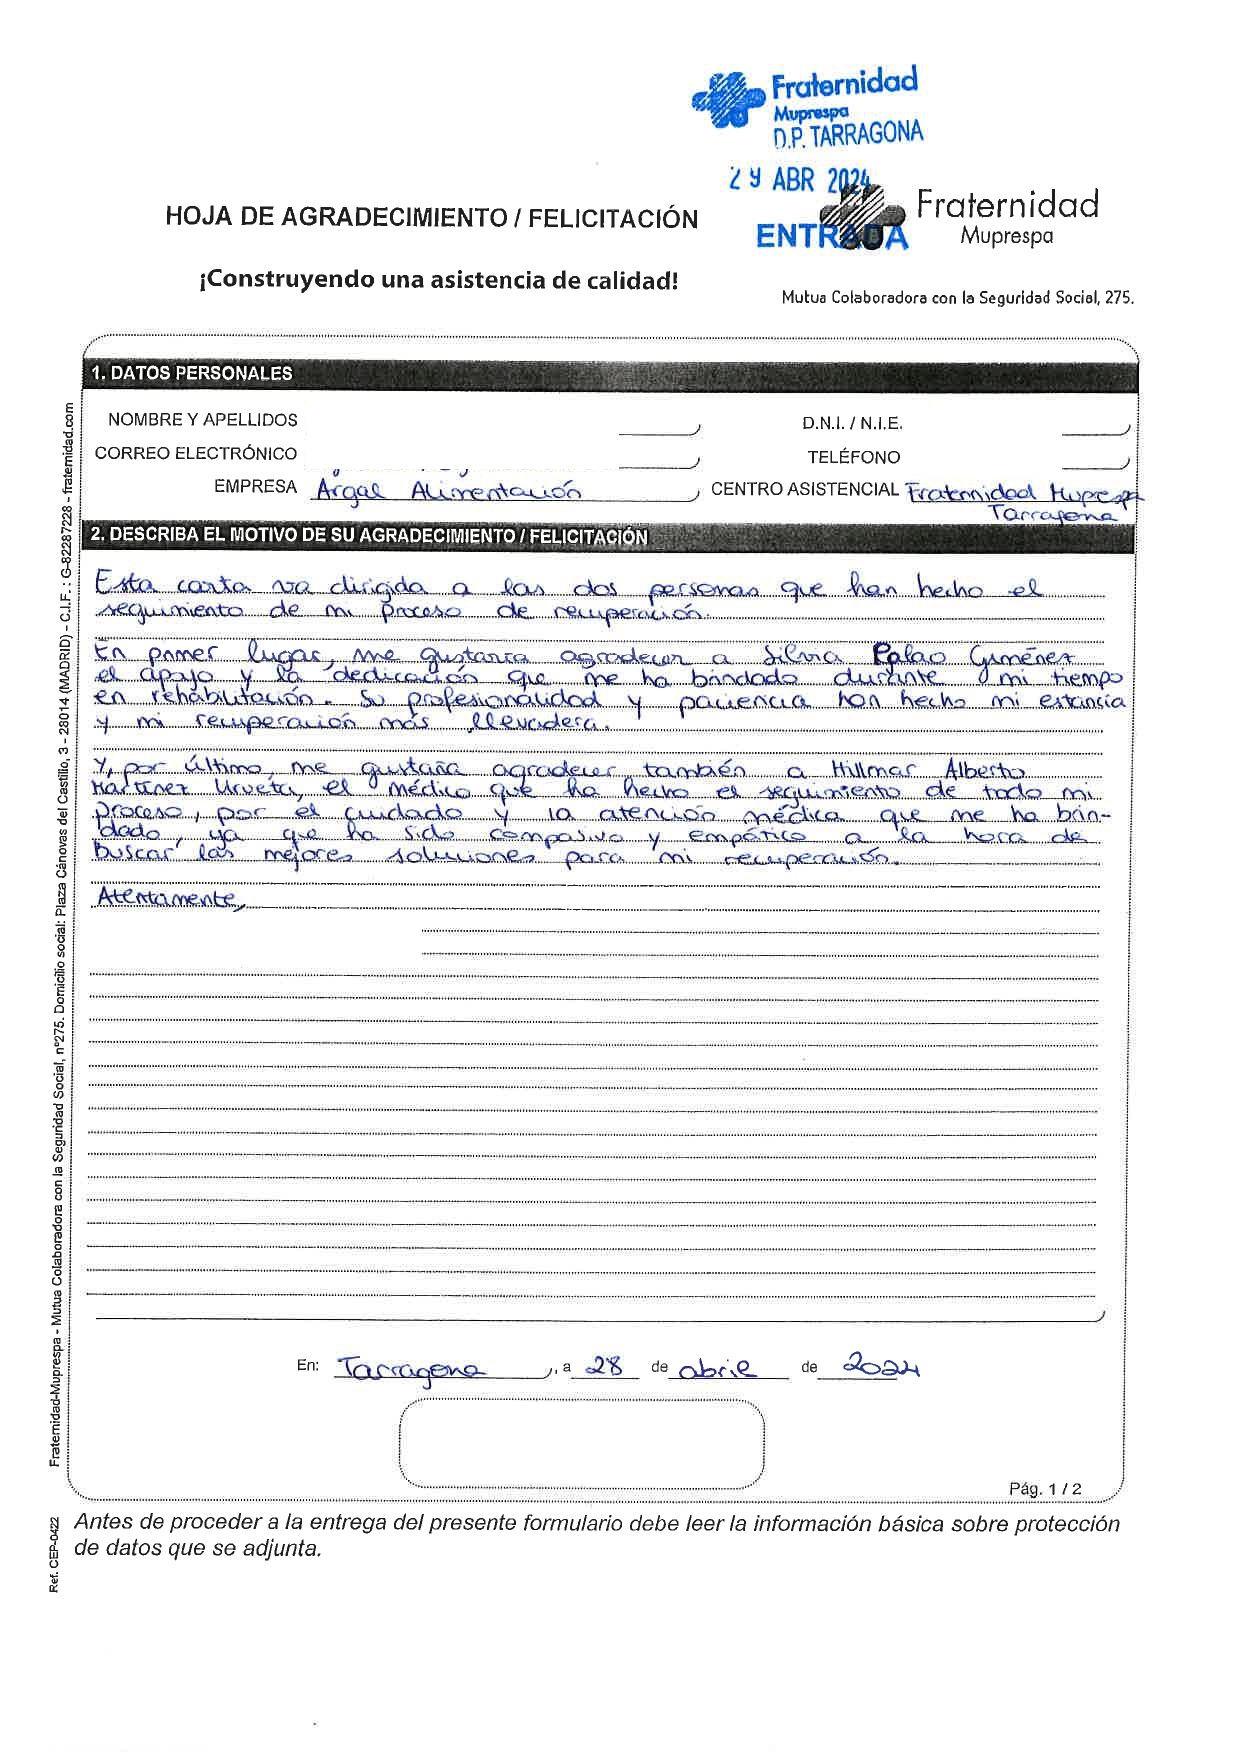 Fraternidad
Muprespa
D.P. TARRAGONA
29 ABR 2024
ENTRADA
Fraternidad
Muprespa
HOJA DE AGRADECIMIENTO / FELICITACIÓN
¡Construyendo una asistencia de calidad!
Mutua Colaboradora con la Seguridad Social, 275.
1. DATOS PERSONALES
NOMBRE Y APELLIDOS
D.N.I. / N.I.E.
CORREO ELECTRÓNICO
TELÉFONO
EMPRESA Argal Alimentación
CENTRO ASISTENCIAL Fraternidad Muprespa
Tarragona
2. DESCRIBA EL MOTIVO DE SU AGRADECIMIENTO / FELICITACIÓN
Esta carta va dirigida a las dos personas que han hecho el
seguimiento de mi proceso de recuperación.
En primer lugar, me gustaría agradecer a Silvia Palao Giménez
el apoyo y la dedicación que me ha brindado durante mi tiempo
en rehabilitación. Su profesionalidad y paciencia han hecho mi estancia
y mi recuperación más llevadera.
Y, por último, me gustaría agradecer también a Hillmar Alberto
Martínez Urveta, el médico que ha hecho el seguimiento de todo mi
proceso, por el cuidado y la atención médica que me ha brin-
dado, ya que ha sido compasivo y empático a la hora de
buscar las mejores soluciones para mi recuperación.
Atentamente,
En: Tarragona, a 28 de abril de 2024
Pág. 1 / 2
Antes de proceder a la entrega del presente formulario debe leer la información básica sobre protección
de datos que se adjunta.
Fraternidad-Muprespa - Mutua Colaboradora con la Seguridad Social, nº275. Domicilio social: Plaza Cánovas del Castillo, 3 - 28014 (MADRID) - C.I.F. : G-82287228 - fraternidad.com
Ref. CEP-0422